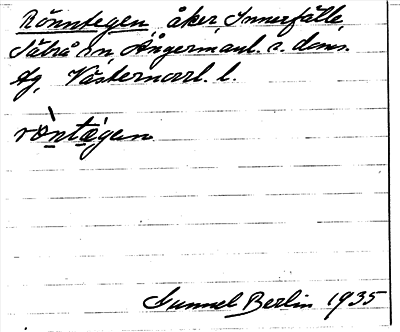 Rönntegen, åker, Innerfälle,
Sätrå sn, Ångermanl. s. doms.
fg, Västernorrl. l.
rön̄tē̦gen
Gunnel Berlin 1935